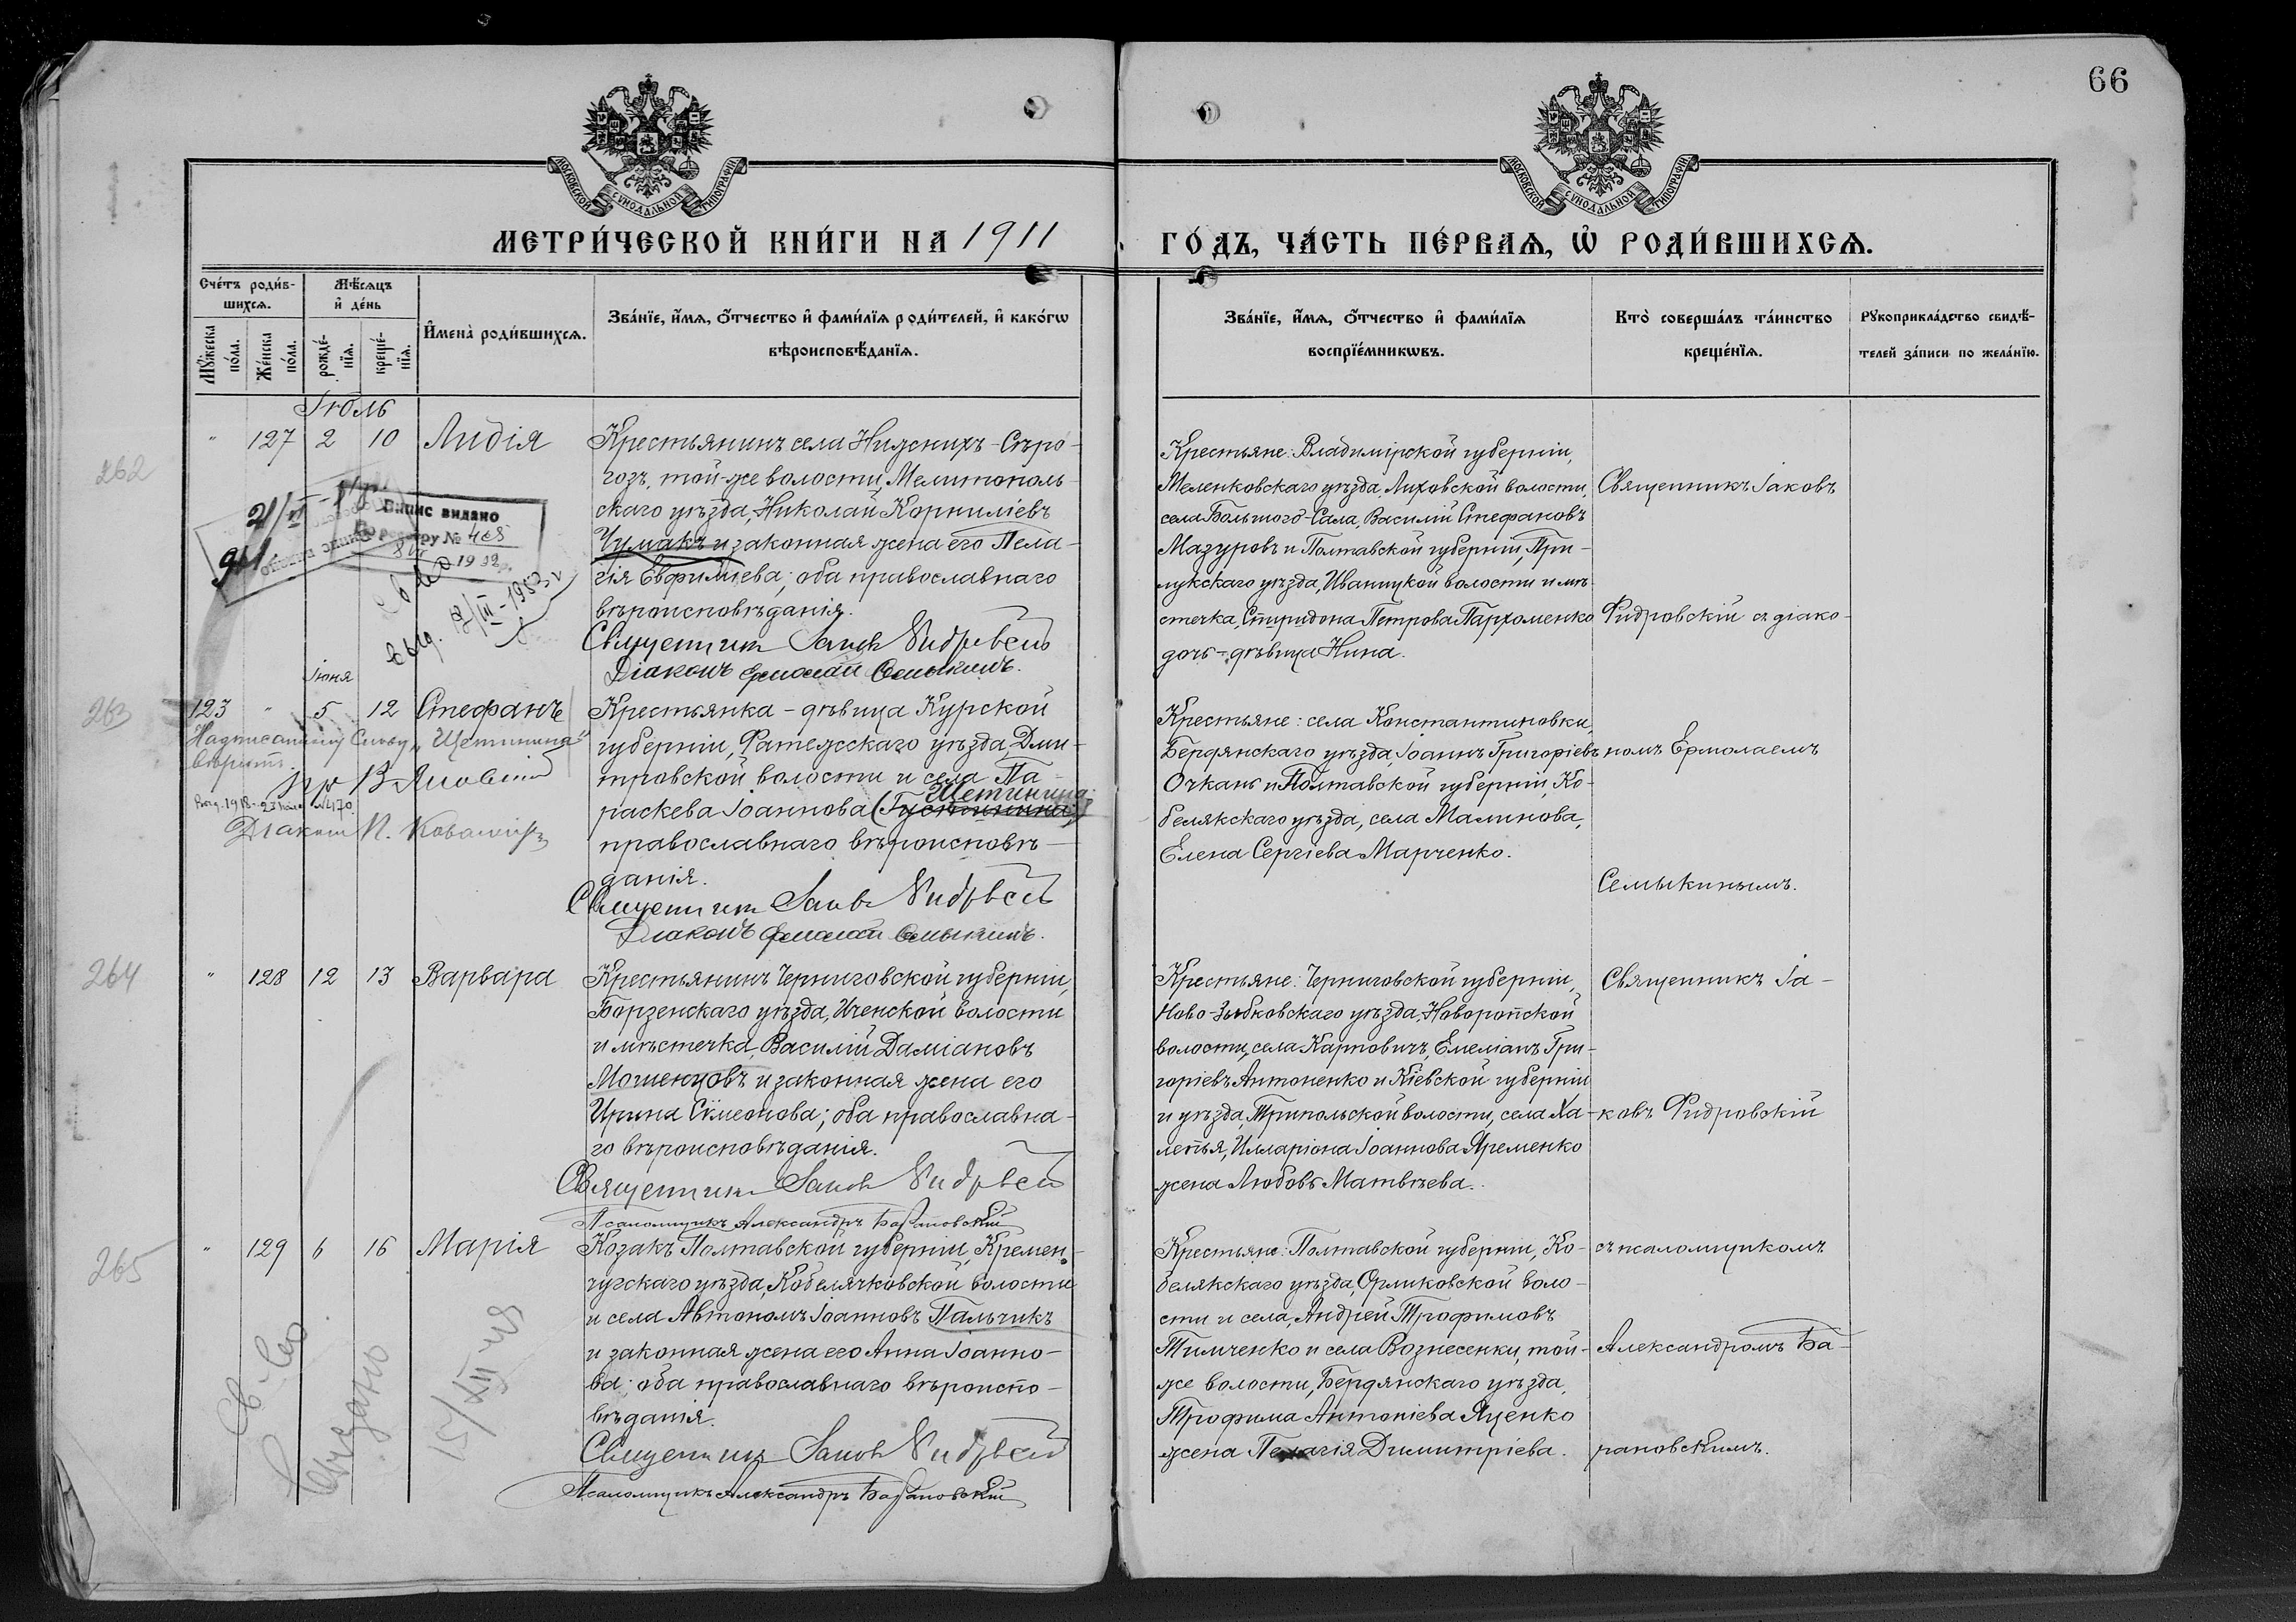 66
МОСКОВСКОЙ СѴНОДАЛЬНОЙ ТИПОГРАФІИ
МОСКОВСКОЙ СѴНОДАЛЬНОЙ ТИПОГРАФІИ
МЕТРИ́ЧЕСКОЙ КНИ́ГИ НА 1911
ГО́ДЪ, ЧА́СТЬ ПЕ́РВАѦ, Ѡ҆ РОДИ́ВШИХСѦ.
Сче́тъ роди́в-
шихсѧ.
Мꙋ́жеска по́ла.
Же́нска по́ла.
Мѣ́сѧцъ
и҆ де́нь
рожде́-
нїѧ.
креще́-
нїѧ.
И҆мена̀ роди́вшихсѧ.
Зва́нїе, и҆́мѧ, ѻ҆́тчество и҆ фами́лїѧ роди́телей, и҆ како́гѡ
вѣроисповѣ́данїѧ.
Зва́нїе, и҆́мѧ, ѻ҆́тчество и҆ фами́лїѧ
воспрїе́мникѡвъ.
Кто̀ соверша́лъ та́инство
креще́нїѧ.
Рꙋкоприкла́дство свидѣ́-
телей за́писи по жела́нїю.
Іюль
262
" 127 2 10 Лидія
Крестьянинъ села Нижнихъ-Сѣро-
гозъ, той-же волости, Мелитополь-
скаго уѣзда, Николай Корниліевъ
Чумакъ и законная жена его Пела-
гія Евфиміева; оба православнаго
вѣроисповѣданія.
Священникъ Іаковъ Фидровскій
Діаконъ Ермолай Семыкинъ.
Крестьяне: Владимірской губерніи,
Меленковскаго уѣзда, Ляховской волости,
села Большого-Сала, Василій Стефановъ
Мазуровъ и Полтавской губерніи, При-
лукскаго уѣзда, Иваницкой волости и мѣ-
стечка, Спиридона Петрова Пархоменко
дочь-дѣвица Нина.
Священникъ Іаковъ
Фидровскій съ діако-
Випис видано
по реєстру № 468
1932
выд. 18/III-1952 г
263
іюня
123 " 5 12 Стефанъ
Надписанному слову „Щетинина"
вѣрить.
Діаконъ
Крестьянка-дѣвица Курской
губерніи, Фатежскаго уѣзда, Дми-
тровской волости и села Па-
раскева Іоаннова (Щетинина)
православнаго вѣроисповѣ-
данія.
Священникъ Іаковъ Фидровскій
Діаконъ Ермолай Семыкинъ.
Крестьяне: села Константиновки,
Бердянскаго уѣзда, Іоаннъ Григоріевъ
Очкань и Полтавской губерніи, Ко-
белякскаго уѣзда, села Малинова,
Елена Сергіева Марченко.
номъ Ермолаемъ
Семыкинымъ.
264
" 128 12 13 Варвара
Крестьянинъ Черниговской губерніи,
Борзенскаго уѣзда, Иченской волости
и мѣстечка, Василій Даміановъ
Мошенцовъ и законная жена его
Ирина Сѵмеонова; оба православна-
го вѣроисповѣданія.
Священникъ Іаковъ Фидровскій
Псаломщикъ Александръ Барановскій
Крестьяне: Черниговской губерніи,
Ново-Зыбковскаго уѣзда, Новоропской
волости, села Карповичъ, Емеліанъ Гри-
горіевъ Антоненко и Кіевской губерніи
и уѣзда, Трипольской волости, села Ха-
лепья, Илларіона Іоаннова Яременко
жена Любовь Матвѣева.
Священникъ Іа-
ковъ Фидровскій
265
" 129 6 16 Марія
Козакъ Полтавской губерніи, Кремен-
чугскаго уѣзда, Кобелячковской волости
и села Автономъ Іоанновъ Пальчикъ
и законная жена его Анна Іоанно-
ва; оба православнаго вѣроиспо-
вѣданія.
Священникъ Іаковъ Фидровскій
Псаломщикъ Александръ Барановскій
Крестьяне: Полтавской губерніи, Ко-
белякскаго уѣзда, Орликовской воло-
сти и села, Андрей Трофимовъ
Тимченко и села Вознесенки, той-
же волости, Бердянскаго уѣзда,
Трофима Антоніева Яценко
жена Пелагія Димитріева.
съ псаломщикомъ
Александромъ Ба-
рановскимъ.
св-во
выдано